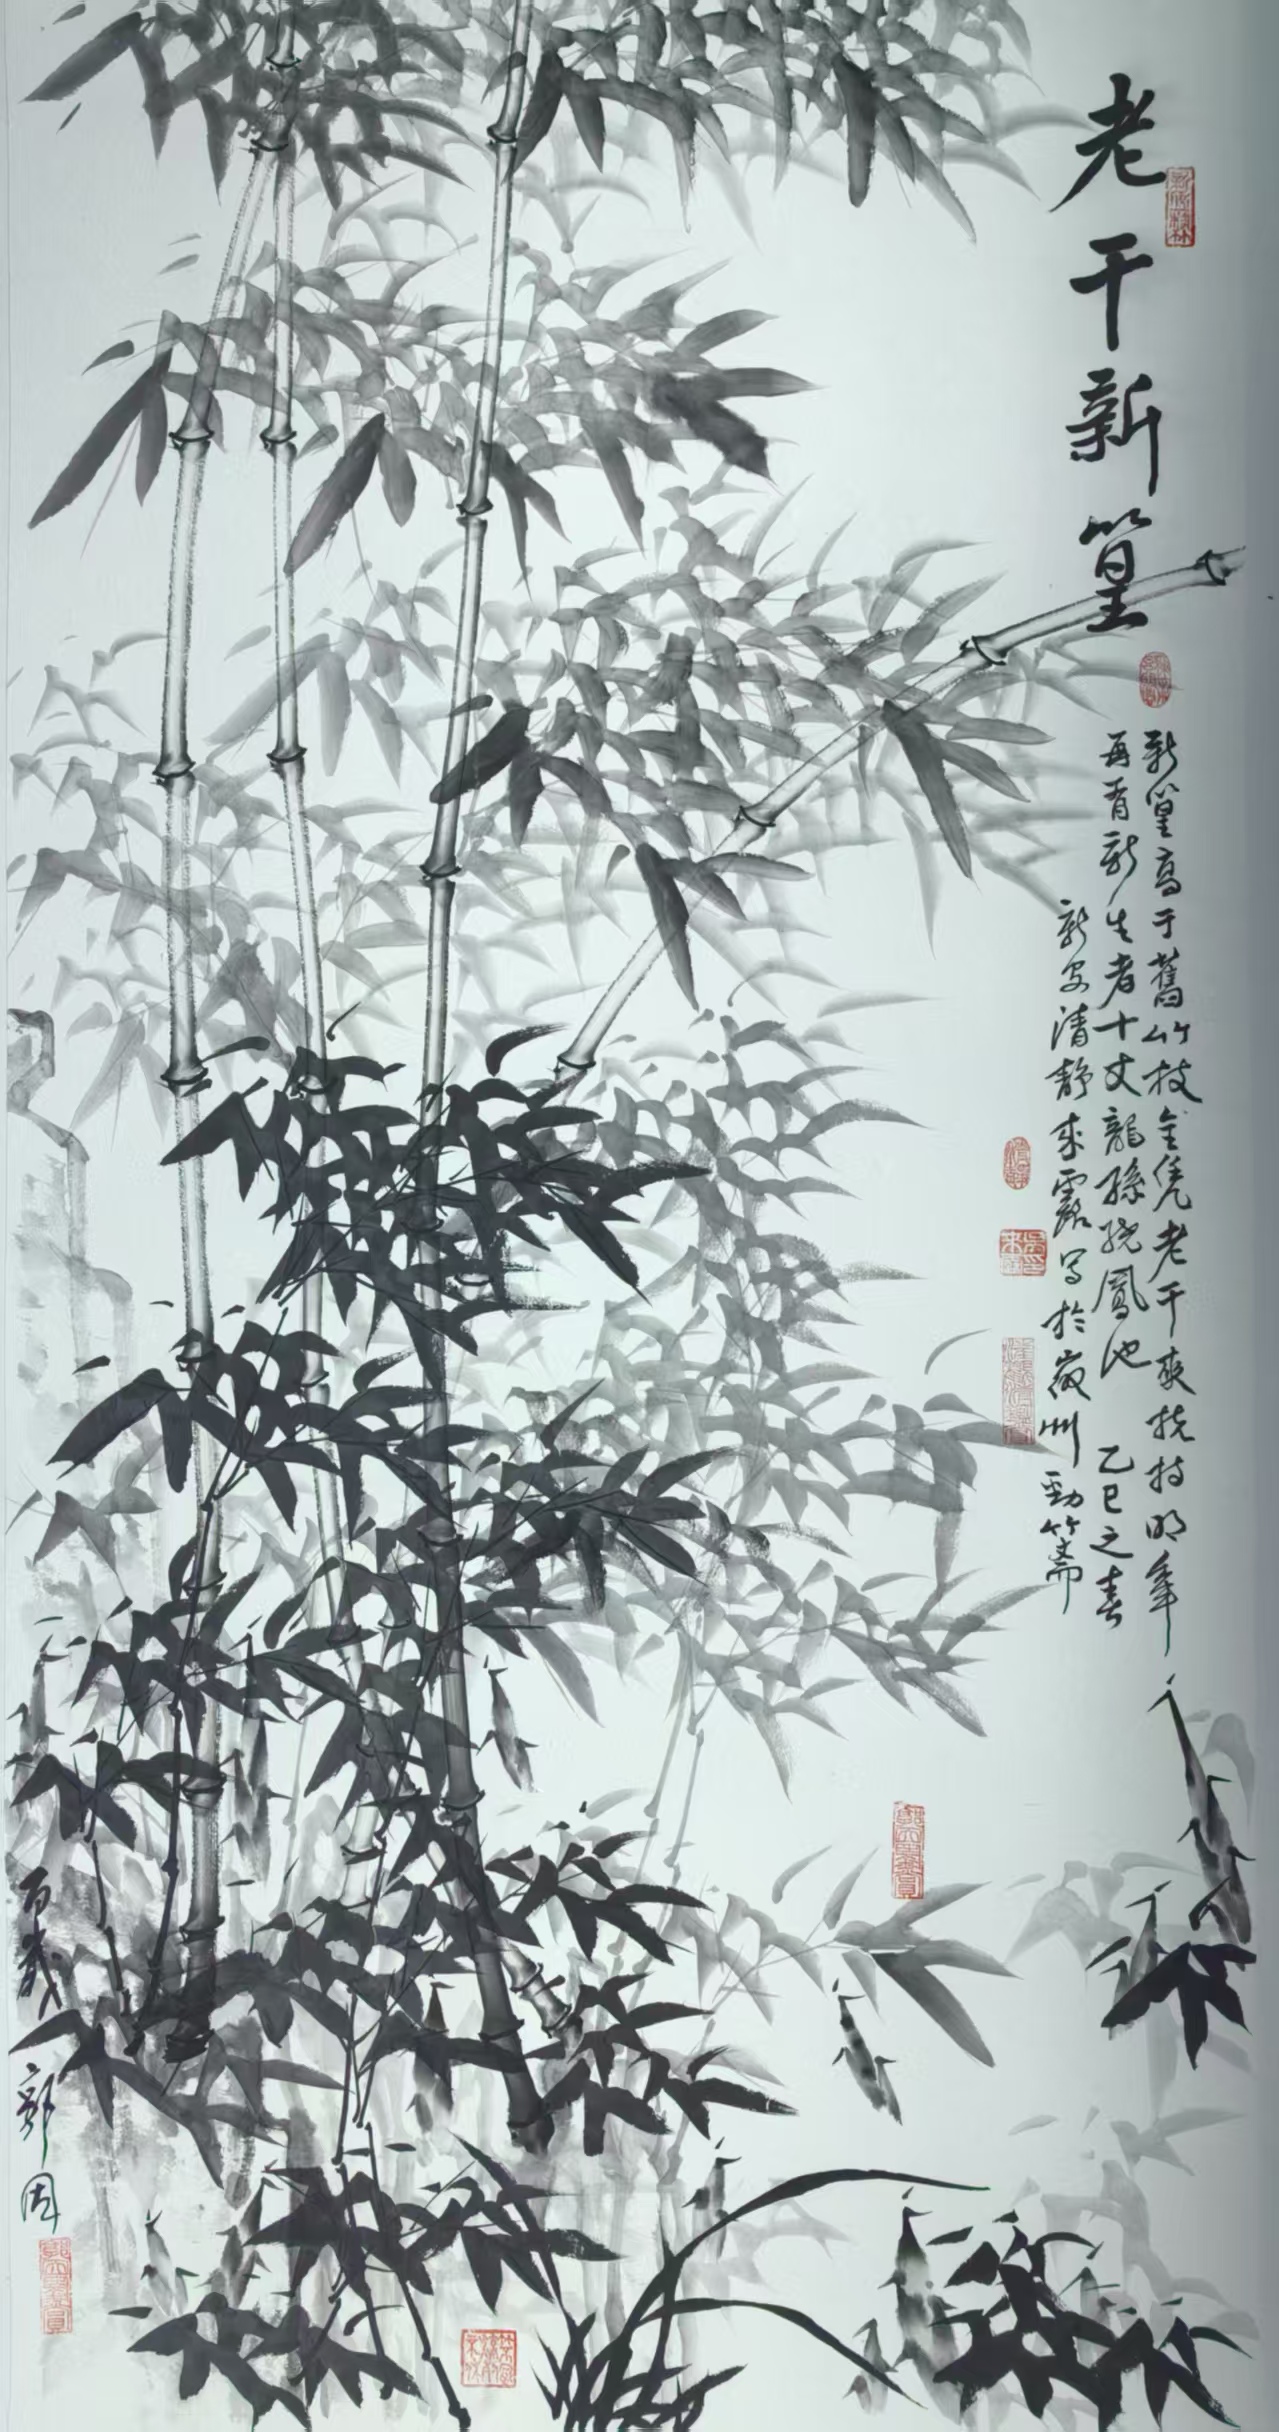 老干新篁
新篁高于舊竹枝全凭老干来扶持明年
再有新生者十丈龍孫繞鳳池 乙巳之春
新安清静来露写於徽州劲竹斋
百歲
郭因